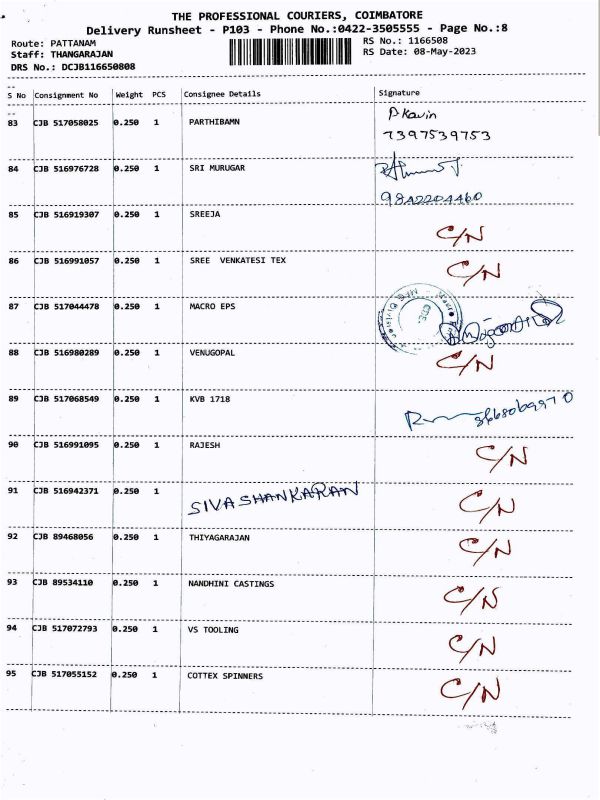 THE PROFESSIONAL COURIERS, COIMBATORE
Delivery Runsheet - P103 - Phone No.:0422-3505555 - Page No.:8
Route: PATTANAM
RS No.: 1166508
Staff: THANGARAJAN
RS Date: 08-May-2023
DRS No.: DCJB116650808
S No Consignment No Weight PCS Consignee Details Signature
83 CJB 517058025 0.250 1 PARTHIBAMN P.Kavin
7397539753
84 CJB 516976728 0.250 1 SRI MURUGAR
9842204460
85 CJB 516919307 0.250 1 SREEJA C/N
86 CJB 516991057 0.250 1 SREE VENKATESI TEX C/N
87 CJB 517044478 0.250 1 MACRO EPS
88 CJB 516980289 0.250 1 VENUGOPAL C/N
89 CJB 517068549 0.250 1 KVB 1718
90 CJB 516991095 0.250 1 RAJESH C/N
91 CJB 516942371 0.250 1 SIVASHANKARAN C/N
92 CJB 89468056 0.250 1 THIYAGARAJAN C/N
93 CJB 89534110 0.250 1 NANDHINI CASTINGS C/N
94 CJB 517072793 0.250 1 VS TOOLING C/N
95 CJB 517055152 0.250 1 COTTEX SPINNERS C/N